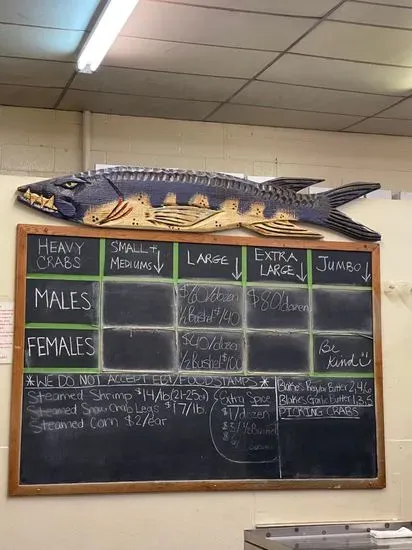 HEAVY CRABS
SMALL + MEDIUMS ↓
LARGE ↓
EXTRA LARGE ↓
JUMBO ↓
MALES
$60/dozen
½ Bushel $140
$80/dozen
FEMALES
$40/dozen
½ Bushel $100
Be Kind
* WE DO NOT ACCEPT EBT/FOODSTAMPS *
Steamed Shrimp $14/lb (21-25ct)
Steamed Snow Crab Legs $17/lb.
Steamed Corn $2/ear
Extra Spice
$1/dozen
$3/½ Bushel
Blake's Regular Butter 2,4,6
Blake's Garlic Butter 1,3,5
PICKING CRABS